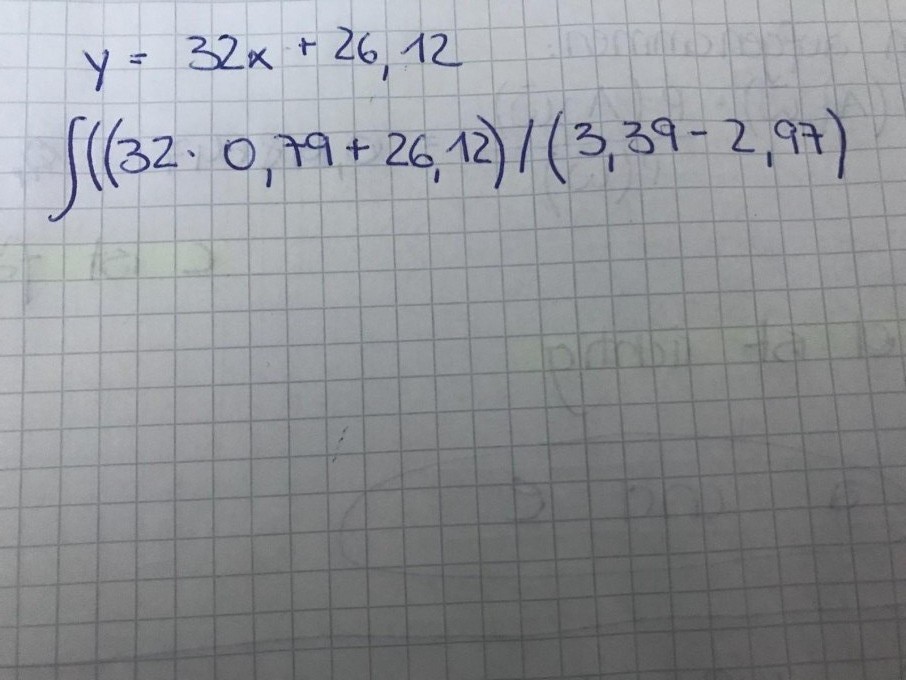 y = 32x + 26,12
∫((32· 0,79 + 26,12) / (3,39 - 2,97)